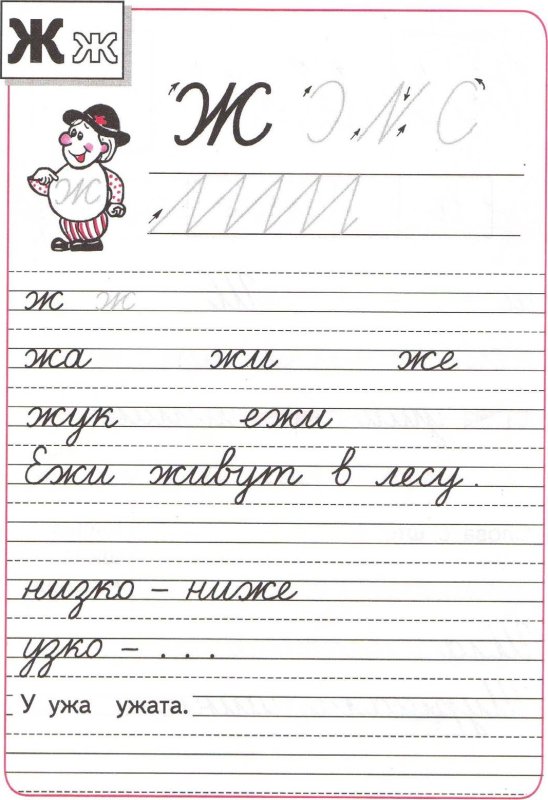 Ж ж
Ж
Ж
ж ж
жа жи же
жук ежи
Ежи живут в лесу.
низко – ниже
узко – . . .
У ужа ужата.